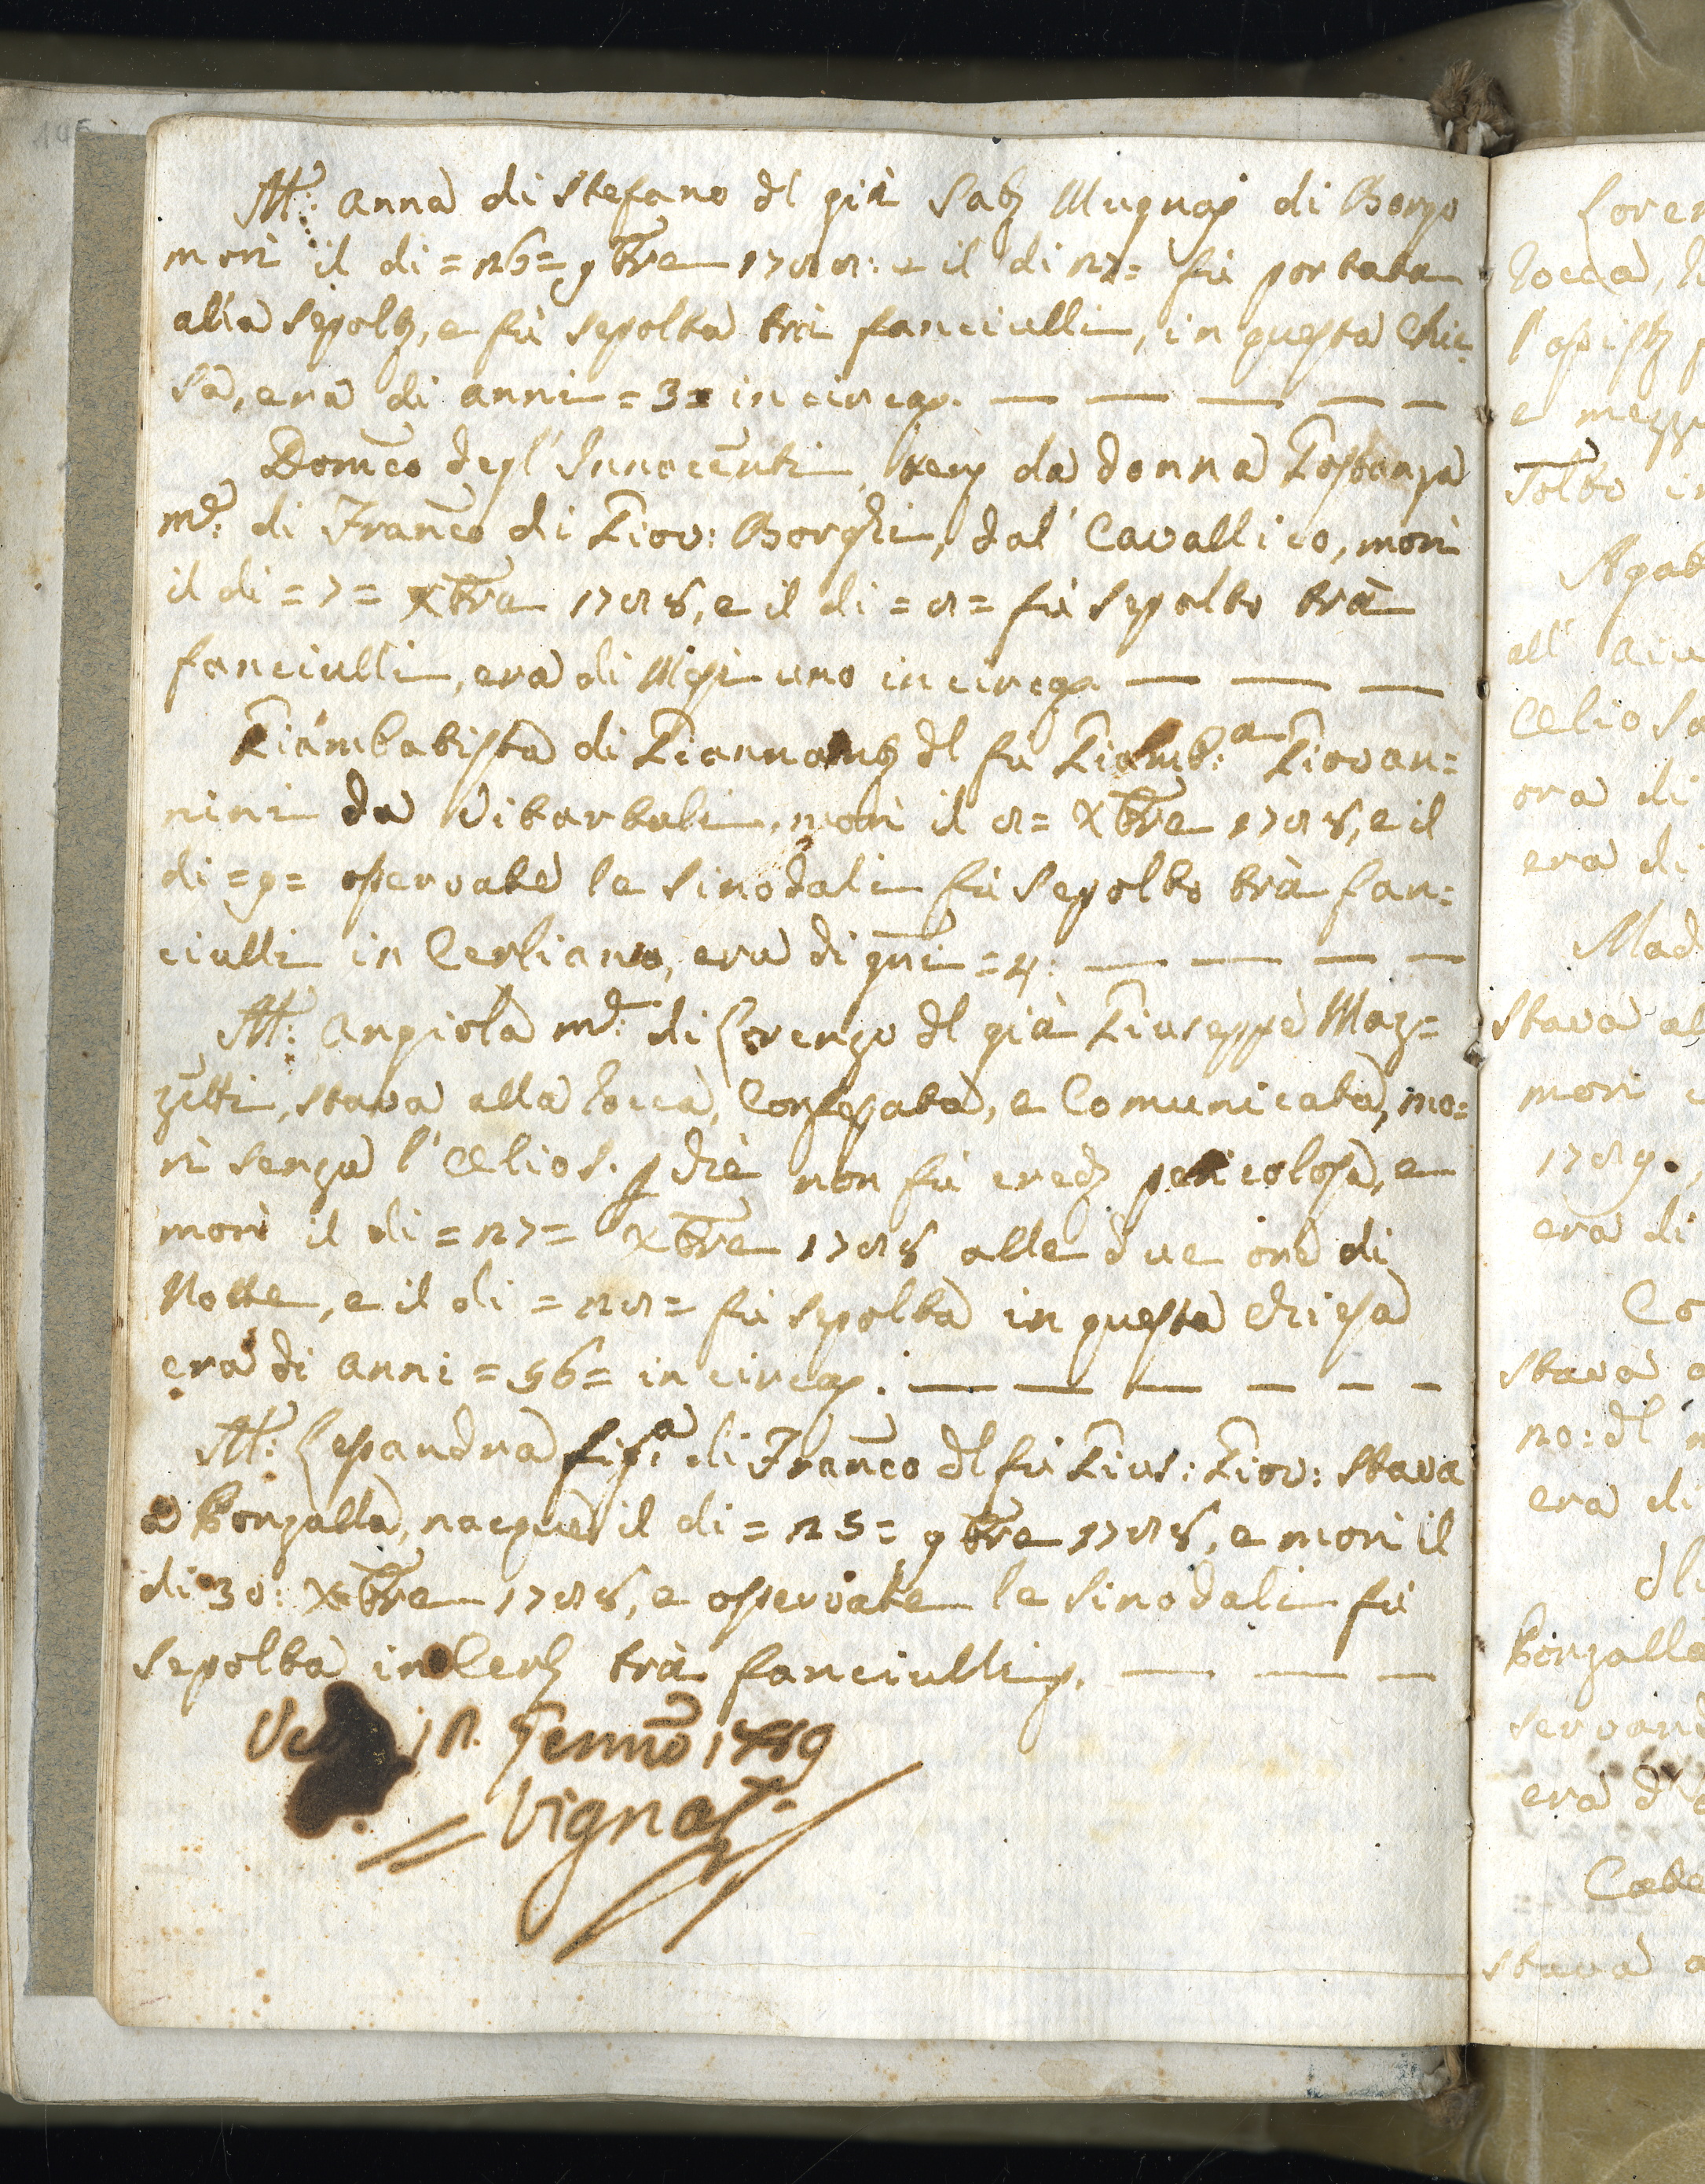 M: Anna di Stefano dl già Mugnaj di Borgo
morì il di = 26 = 9bre 1788: e il di 27 = fù portata
alla sepolt, e fù sepolta trà fanciulli, in questa Chie-
sa, era di anni = 3 = in circa.
Domco degl'Innocenti, da donna Gostanza
me: di Franco di Giov: Borghi, dal Cavallico, morì
il di = 7 = Xbre 1788, e il di = 8 = fù sepolto trà
fanciulli, era di Mesi uno in circa.
Giambatista di dl fù Giamb:a Giovan=
nini da Vitartali, morì il 8 = Xbre 1788, e il
di = 9 = osservate le sinodali fù sepolto trà fan=
ciulli in Cerliano, era di gni = 4:
M: Angiola me: di Lorenzo dl già Giuseppe Maz=
zetti, stava alla Rocca, Confessata, e Comunicata, mo=
rì senza l'Olio S. p chè non fù cred pericolosa, e
morì il di = 27 = Xbre 1788 alle due ore di
Notte, e il di = 28 = fù sepolta in questa Chiesa
era di anni = 56 = in circa.
M: Lesandra figa di Franco dl fù Gius: Giov: stava
a Bonzalla, nacque il di = 25 = 9bre 1788, e morì il
di 30: Xbre 1788, e osservate le sinodali fù
sepolta in Cerl trà fanciulli.
12. Gennro 1789
= Vignal
Loren
Rocca,
e mezz
solto in
Agat
all'
Olio Sa
ora di
era di
Mad
stava al
morì
1789.
era di
Co
stava a
no: dl
era di
Bonzalla
servan
era di
Cate
stava a